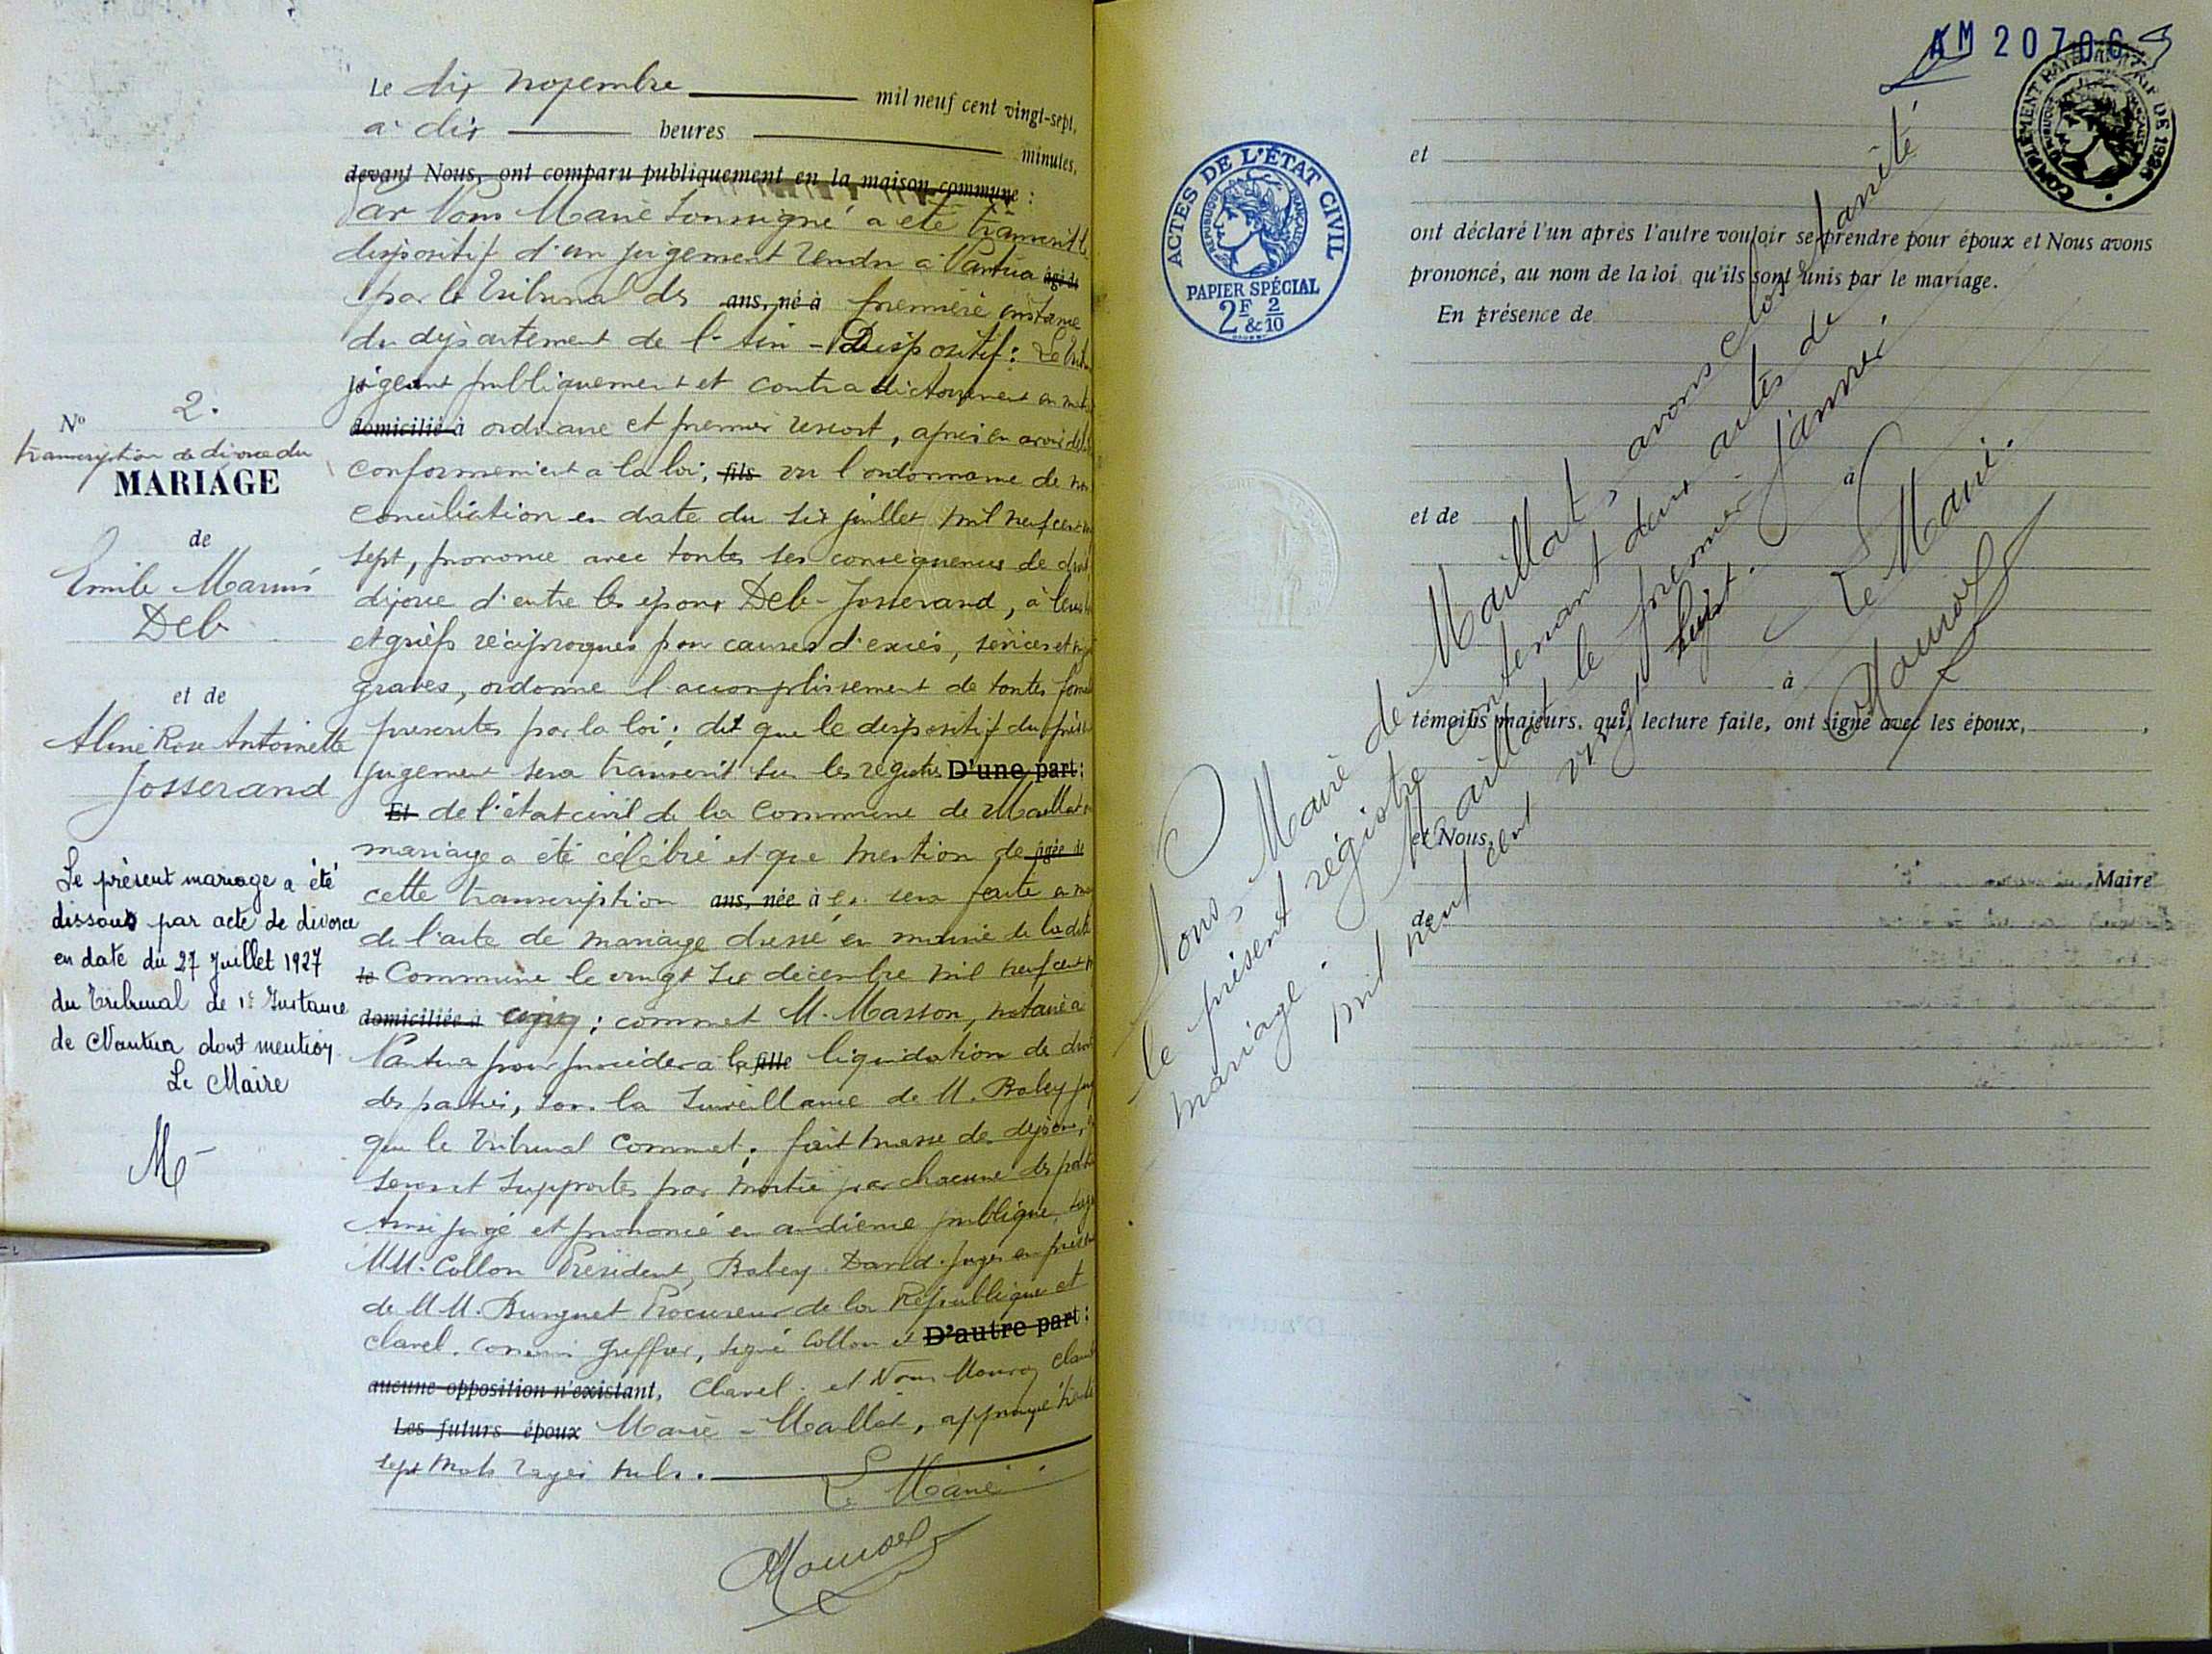 Le dix novembre mil neuf cent vingt-sept,
à dix heures minutes,
devant Nous, ont comparu publiquement en la maison commune :
Par Nous Maire soussigné a été transcrit le
dispositif d'un jugement rendu à Nantua âgé de
par le Tribunal de ans, né à première instance
du département de l'Ain - Dispositif : Le
jugeant publiquement et contradictoirement en
domicilié à ordinaire et premier ressort, après en avoir
conformément à la loi, fils vu l'ordonnance de non
conciliation en date du six juillet mil neuf cent
sept, prononce avec toutes ses conséquences de droit
divorce d'entre les époux Deb-Josserand, à leurs
et griefs réciproques pour causes d'excès, sévices et
graves, ordonne l'accomplissement de toutes
prescrites par la loi ; dit que le dispositif du
jugement sera transcrit sur les registres D'une part :
Et de l'état civil de la Commune de Maillat
mariage a été célébré et que mention de âgée de
cette transcription ans, née à sera faite en
de l'acte de mariage dressé en mairie de ladite
Commune le vingt six décembre mil neuf cent
domiciliée à cinq ; commet M. Masson, notaire à
Nantua pour procéder à la fille liquidation de
des parties, sous la surveillance de M. Baley
que le Tribunal commet ; fait masse des dépens,
seront supportés par moitié par chacune des
Ainsi jugé et prononcé en audience publique,
MM. Collon Président, Baley David juges en
de MM. Burguet Procureur de la République et
Clavel, commis greffier, signé Collon et D'autre part :
aucune opposition n'existant, Clavel. et Nous
Les futurs époux Maire - Maillat, approuvé
sept mots rayés nuls.
Le Maire
Nº 2.
transcription de divorce du
MARIAGE
de
Emile Marius
Deb
et de
Aline Rose Antoinette
Josserand
Le présent mariage a été
dissous par acte de divorce
en date du 27 Juillet 1927
du Tribunal de 1e Instance
de Nantua dont mention
Le Maire
AM 20706
COMPLÉMENT DE 1926
ACTES DE L'ÉTAT CIVIL
RÉPUBLIQUE FRANÇAISE
PAPIER SPÉCIAL
2F & 2/10
et
ont déclaré l'un après l'autre vouloir se prendre pour époux et Nous avons
prononcé, au nom de la loi qu'ils sont unis par le mariage.
En présence de
à
et de
à
témoins majeurs, qui, lecture faite, ont signé avec les époux,
et Nous,
Maire
de
Nous, Maire de Maillat, avons clos et arrêté
le présent registre contenant deux actes de
mariage. Maillat le premier janvier
mil neuf cent vingt huit.
Le Maire.